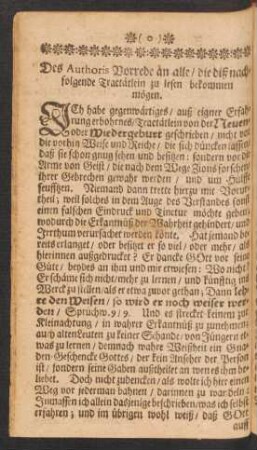 ( o )
Des Authoris Vorrede an alle / die diß nach-
folgende Tractätlein zu lesen bekommen
mögen.
ICh habe gegenwärtiges / auß eigner Erfah-
rung erbohrnes / Tractätlein von der Neuen
oder Wiedergeburt geschrieben / nicht vor
die vorhin Weise und Reiche / die sich düncken lassen
daß sie schon gnug sehen und besitzen: sondern vor die
Arme von Geist / die nach dem Wege Zions forschen /
ihrer Gebrechen gewahr werden / und um Hülffe
seufftzen. Niemand dann trette hierzu mit Vorur-
theil; weil solches in dem Auge des Verstandes sonst
einen falschen Eindruck und Tinctur möchte geben /
wodurch die Erkäntnüß der Wahrheit gehindert / und
Irrthum verursachet werden könte. Hat jemand be-
reits erlanget / oder besitzet er so viel / oder mehr / als
hierinnen außgedruckt? Er dancke GOtt vor seine
Güte / beydes an ihm und mir erwiesen: Wo nicht /
Er schäme sich nicht / mehr zu lernen / und künfftig ins
Werck zu stellen / als er etwa zuvor gethan; Dann leh-
re den Weisen / so wird er noch weiser wer-
den / Sprüchw. 9 / 9. Und es strecket keinem zur
Kleinachtung / in wahrer Erkäntnüß zu zunehmen /
auch alten Leuten zu keiner Schande / von Jüngern et-
was zu lernen / demnach wahre Weißheit ein Gna-
den-Geschencke Gottes / der kein Ansehr der Person
ist / sondern seine Gaben außtheilet an wen es ihm be-
liebet. Doch nicht zudencken / als wolte ich hier einen
Weg vor jederman bahnen / darinnen zu wandeln
Inmassen ich allein dasjenige beschrieben / was ich selbst
erfahren; und im übrigen wohl weiß / daß GOtt
auff